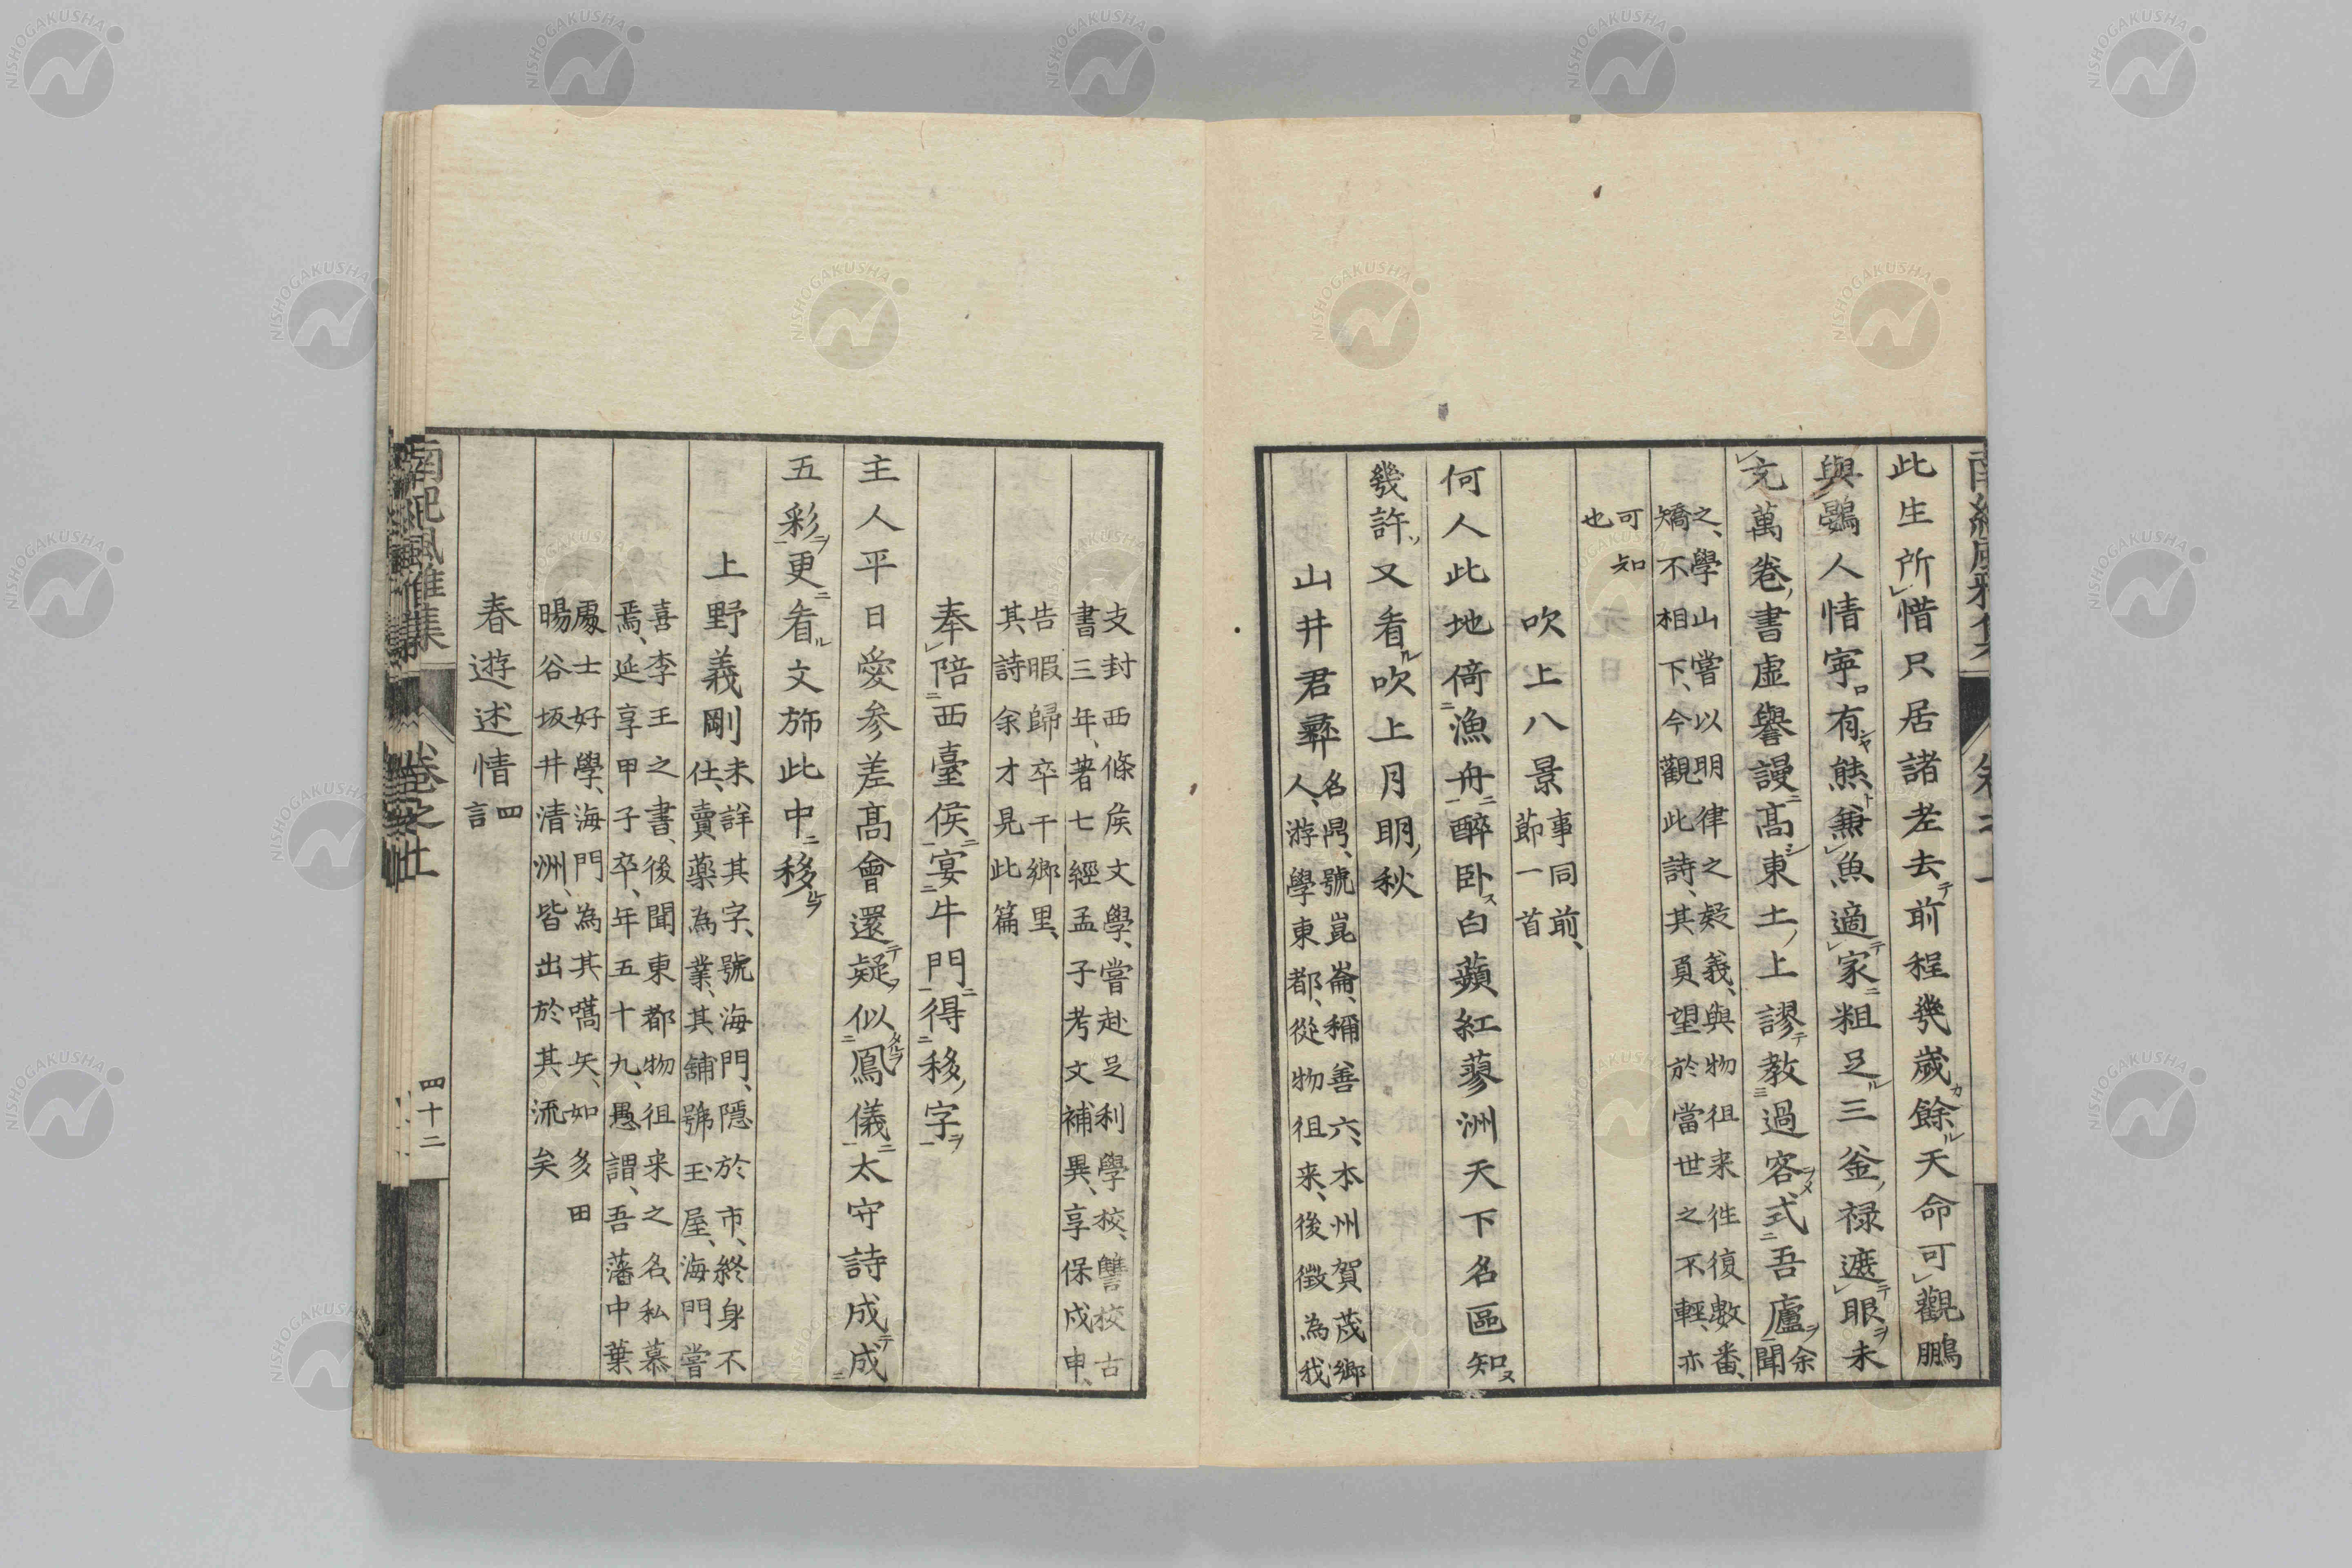 此生所惜只居諸老去前程幾歲餘天命可觀鵬
與鷃人情寧有熊兼魚適家粗足三釜祿遮眼未
充萬卷書虛譽謾高東土上謬教過客式吾廬
余
聞
之、學山嘗以明律之疑義、與物徂来往復數番、
矯不相下、今觀此詩、其負望於當世之不輕、亦
可知
也
吹上八景
事同前、
節一首
何人此地倚漁舟醉卧白蘋紅蓼洲天下名區知
幾許又看吹上月明秋
山井君彝
名鼎、號崑崙、稱善六、本州賀茂鄉
人、游學東都、從物徂来、後徵為我
支封西條矦文學、嘗赴足利學校、讐校古
書三年、著七經孟子考文補異、享保戊申、
告暇歸卒于鄉里、
其詩余才見此篇
奉陪西臺侯宴牛門得移字
主人平日愛參差高會還疑似鳳儀太守詩成成
五彩更看文斾此中移
上野義剛
未詳其字、號海門、隱於市、終身不
仕、賣藥為業、其舖號玉屋、海門嘗
喜李王之書、後聞東都物徂来之名、私慕
焉、延享甲子卒、年五十九、愚謂、吾藩中葉
處士好學、海門為其嚆矢、如多田
暘谷坂井清洲、皆出於其流矣
春遊述情
四
言
南紀風雅集
卷之上
四十二
NISHOGAKUSHA